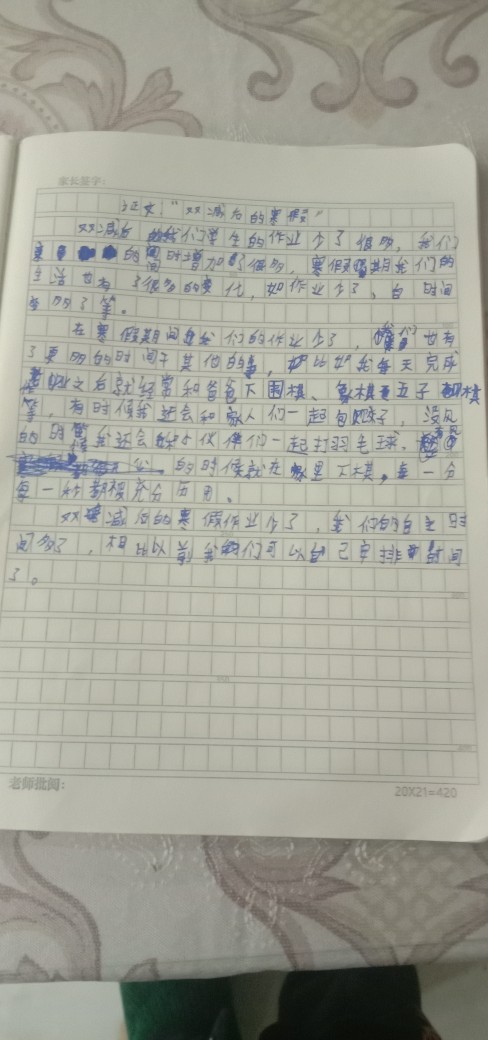 家长签字:
征文:“双减后的寒假”
双减后我们学生的作业少了很多,我们
的时间增加了很多,寒假期我们的
生活也有了很多的变化,如作业少了、自时间
多了等。
在寒假期间我们的作业少了,我们也有
了更多的时间干其他的事,比如我每天完成
作业之后就经常和爸爸下围棋、象棋五子棋
等,有时候我还会和家人们一起包饺子,没风
的时候我还会和伙伴们一起打羽毛球、有风
的时候就在家里下棋,每一分
每一秒都被充分历用。
双减后的寒假作业少了,我们的自主时
间多了,相比以前我们可以自己安排时间
了。
老师批阅:
20X21=420